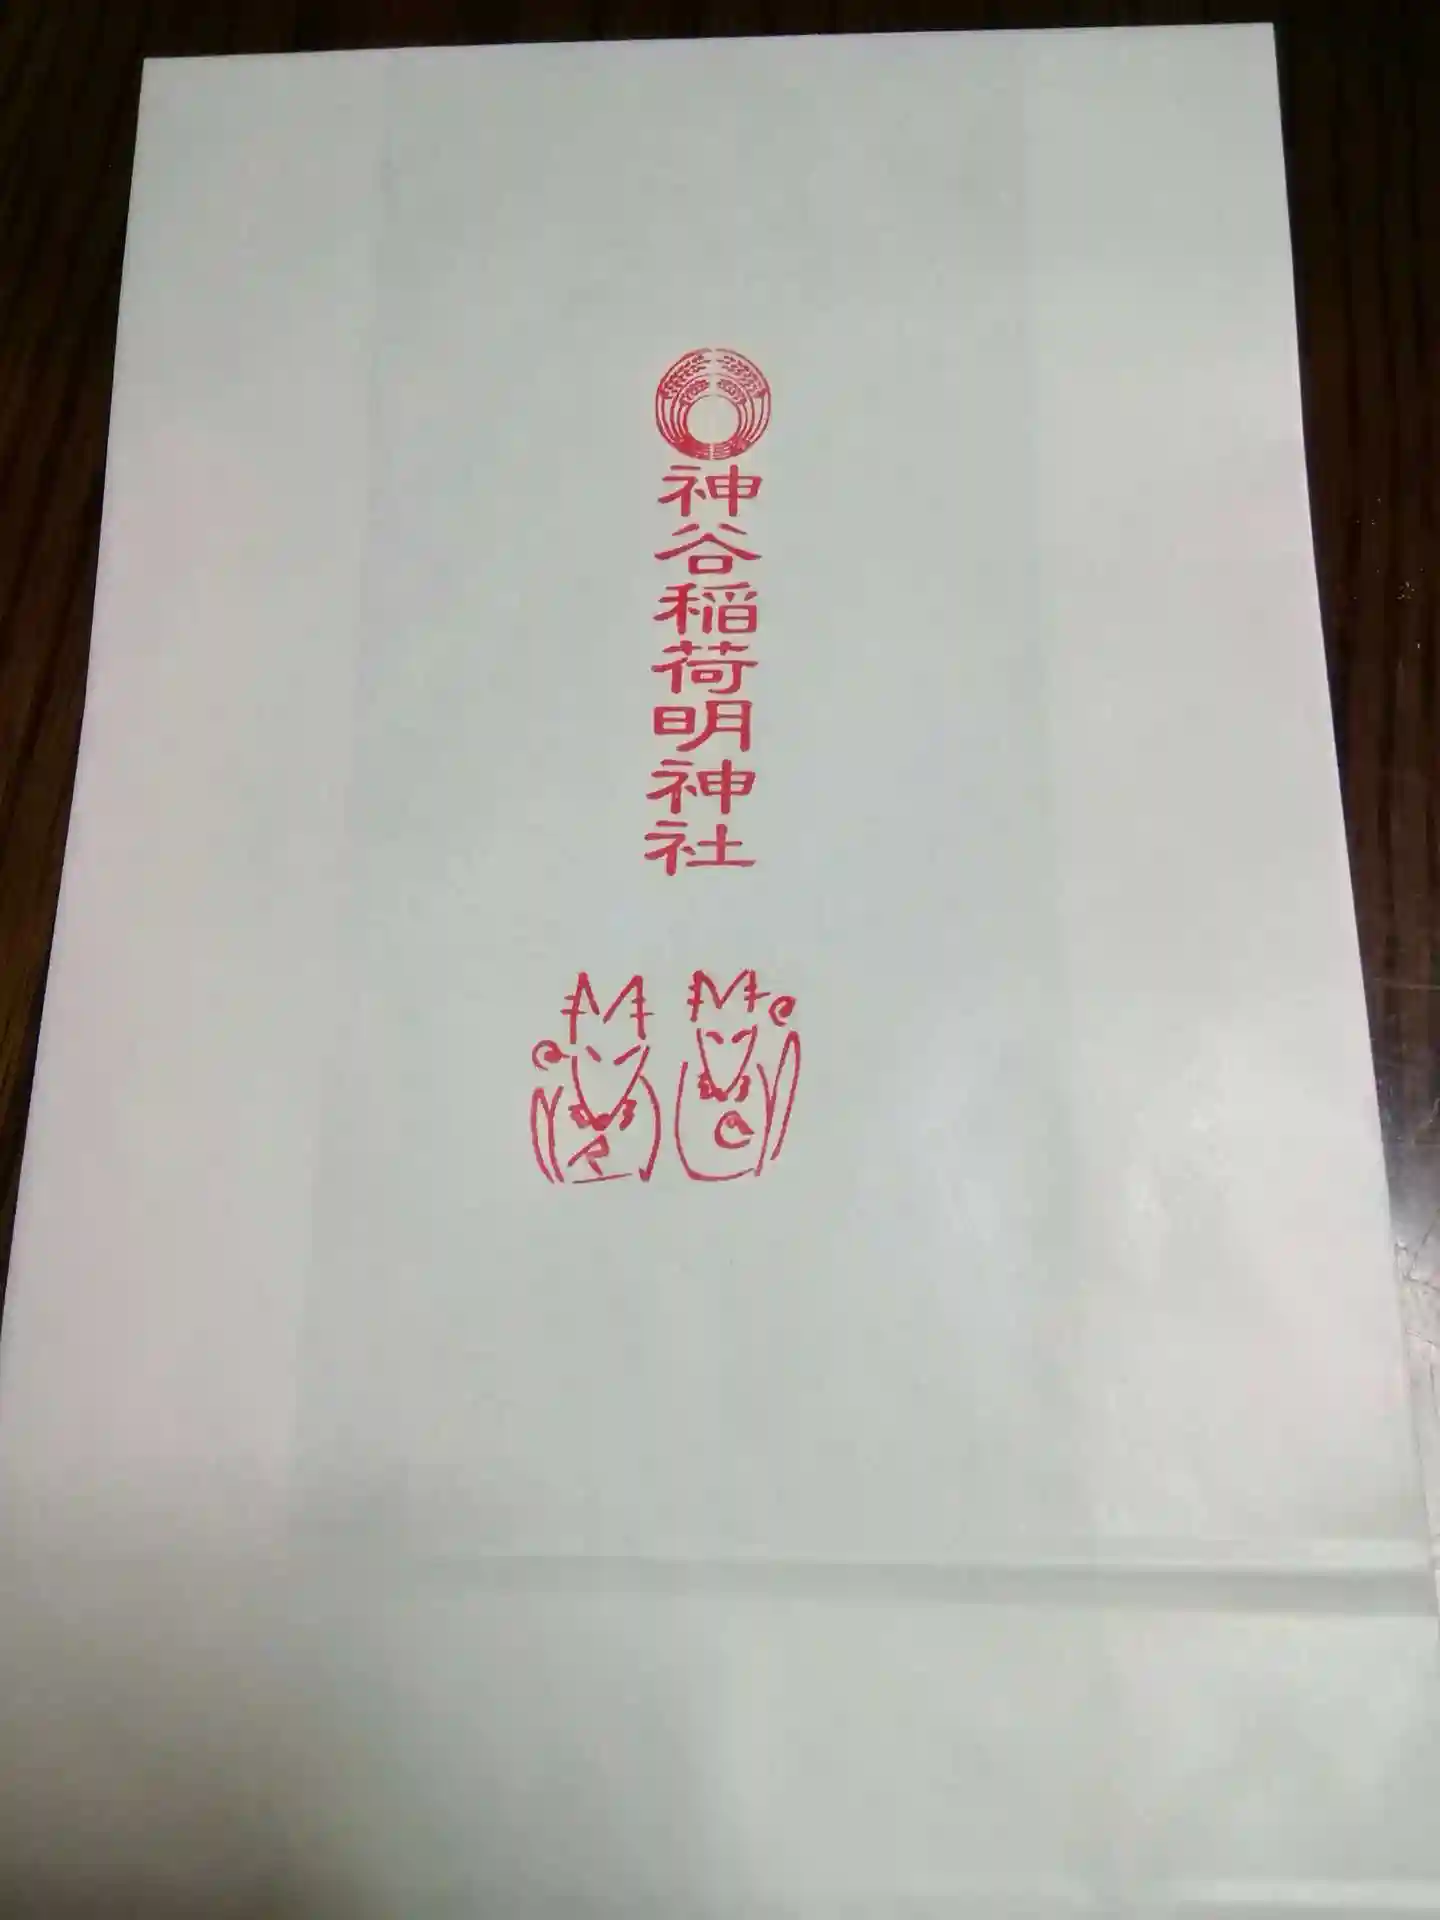 神谷稲荷明神社